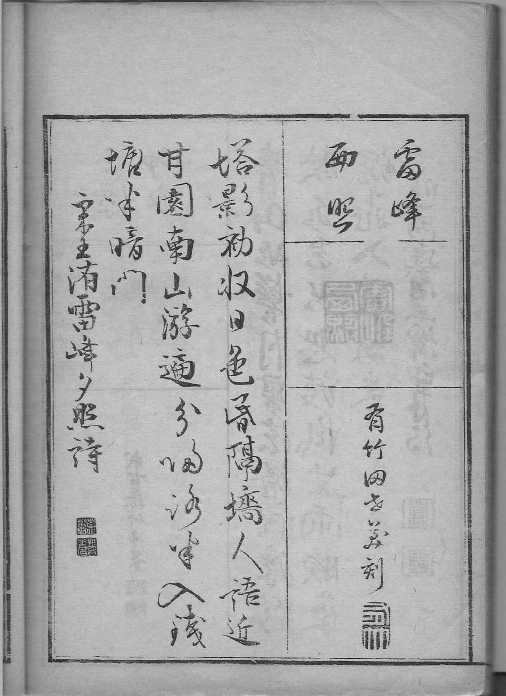 雷峰
西照
有竹田刻
塔影初收日色昏隔墻人語近
甘園南山游遍分歸路半入錢
塘半暗門
宋王洧雷峰夕照詩